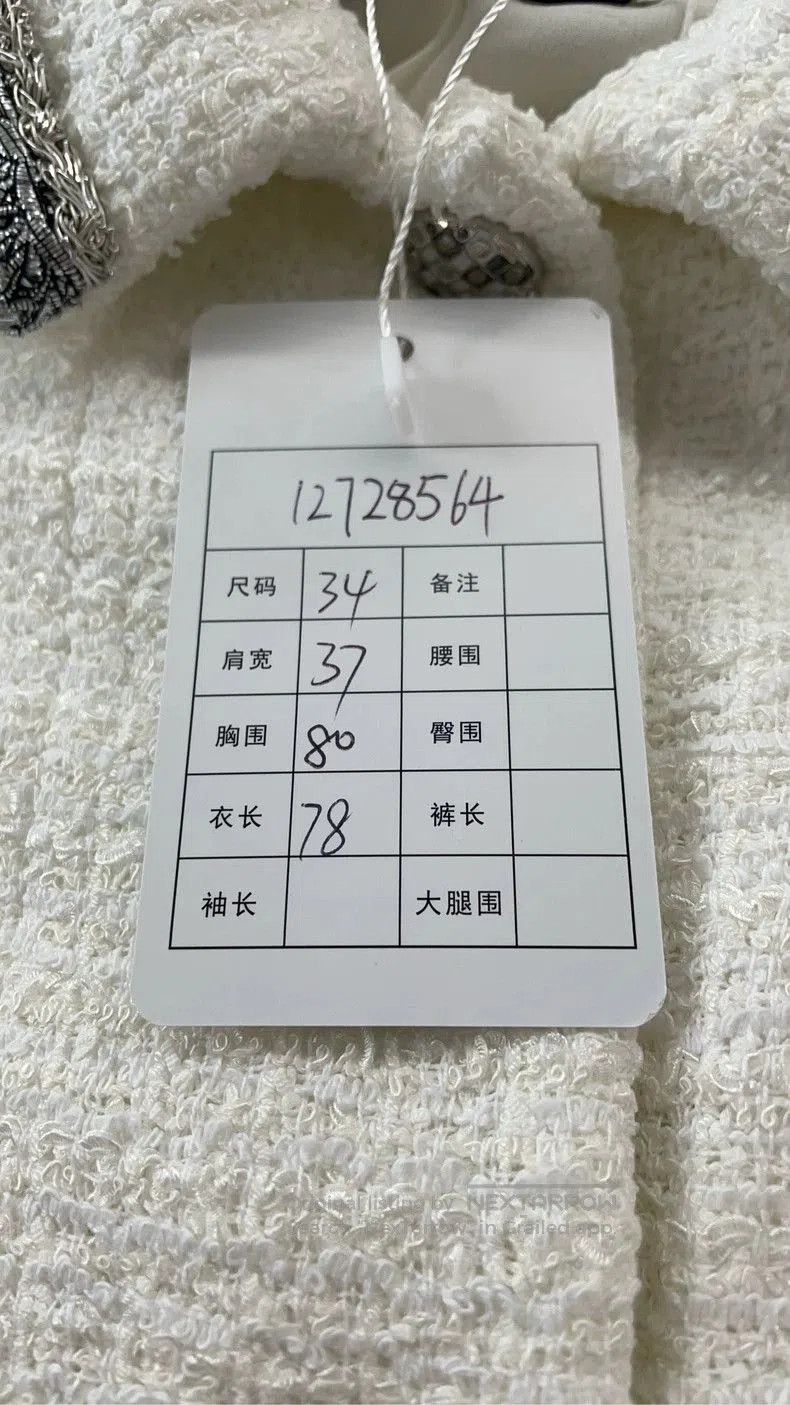 12728564
尺码 34 备注
肩宽 37 腰围
胸围 80 臀围
衣长 78 裤长
袖长 大腿围
original listing by NEXTARROW
in Grailed app